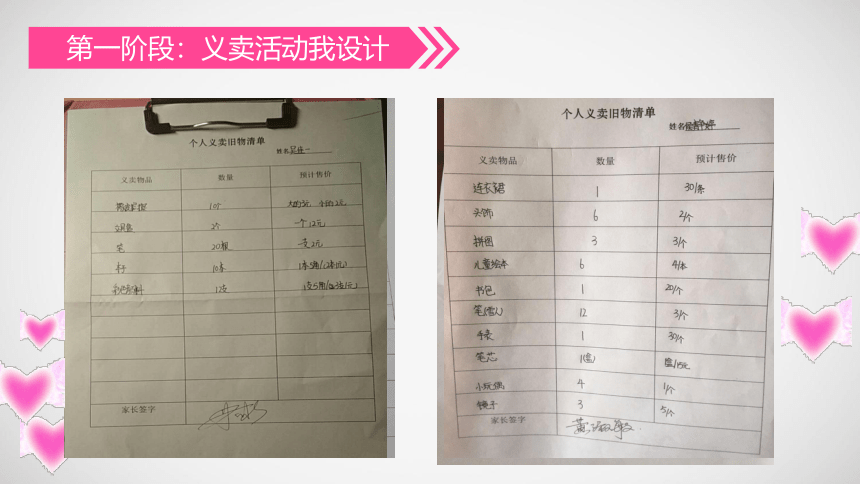 第一阶段：义卖活动我设计
个人义卖旧物清单
姓名
义卖物品 数量 预计售价
10个 大的5元 小的2元
文具盒 2个 一个12元
笔 20根 一支2元
本子 10本 1本5角/(2本1元)
12支 1支5角/(2支1元)
家长签字
个人义卖旧物清单
姓名
义卖物品 数量 预计售价
连衣裙 1 30/条
头饰 6 2/个
拼图 3 3/个
儿童绘本 6 4/本
书包 1 20/个
笔(雪人) 12 3/个
手表 1 30/个
笔芯 1(盒) 盒/15元
小玩偶 4 1/个
镜子 3 5/个
家长签字